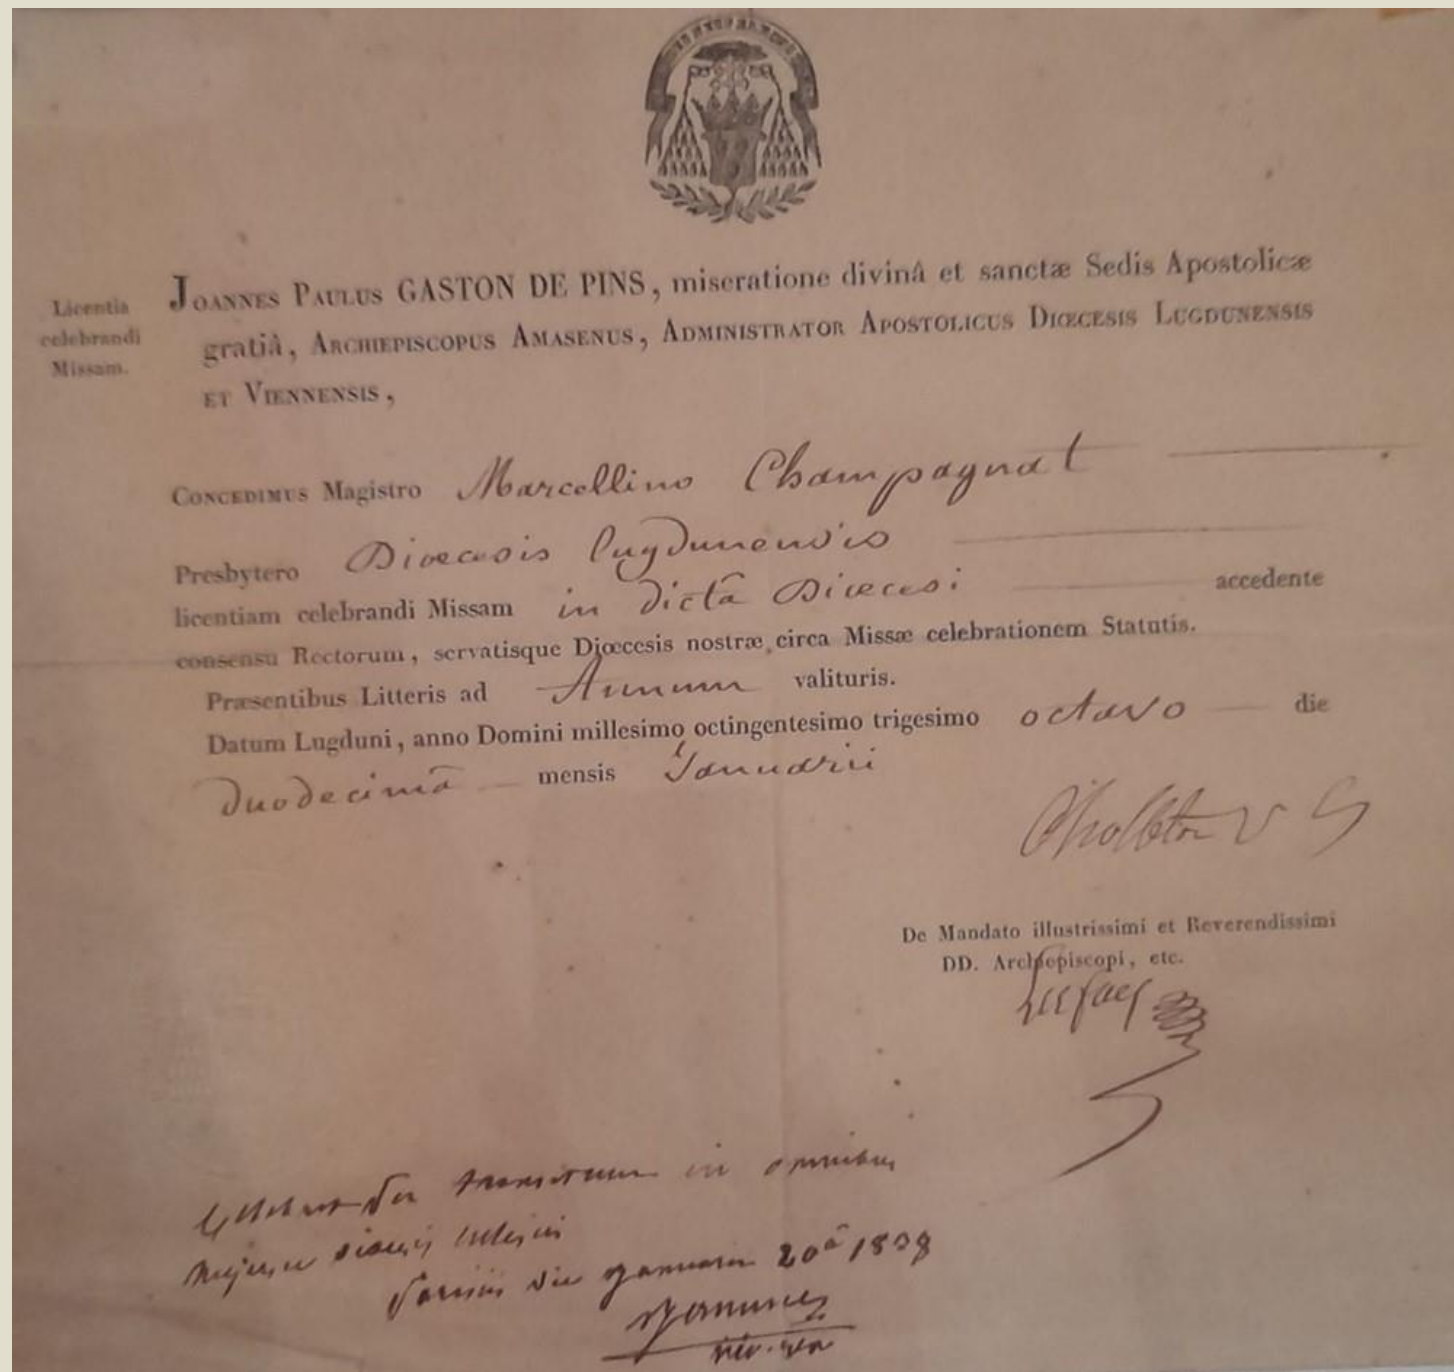 Licentia
celebrandi
Missam.
JOANNES PAULUS GASTON DE PINS, miseratione divinâ et sanctæ Sedis Apostolicæ
gratiâ, ARCHIEPISCOPUS AMASENUS, ADMINISTRATOR APOSTOLICUS DIŒCESIS LUGDUNENSIS
ET VIENNENSIS,
CONCEDIMUS Magistro Marcellino Champagnat
Presbytero Diœcesis lugdunensis
licentiam celebrandi Missam in dictâ Diœcesi accedente
consensu Rectorum, servatisque Diœcesis nostræ circa Missæ celebrationem Statutis.
Præsentibus Litteris ad Annum valituris.
Datum Lugduni, anno Domini millesimo octingentesimo trigesimo octavo die
duodecimâ mensis Januarii
Cholleton V G
De Mandato illustrissimi et Reverendissimi
DD. Archiepiscopi, etc.
Celebret per transitum in omnibus
hujusce diœcesis ecclesiis
Parisiis die Januarii 20â 1838
vic. gen